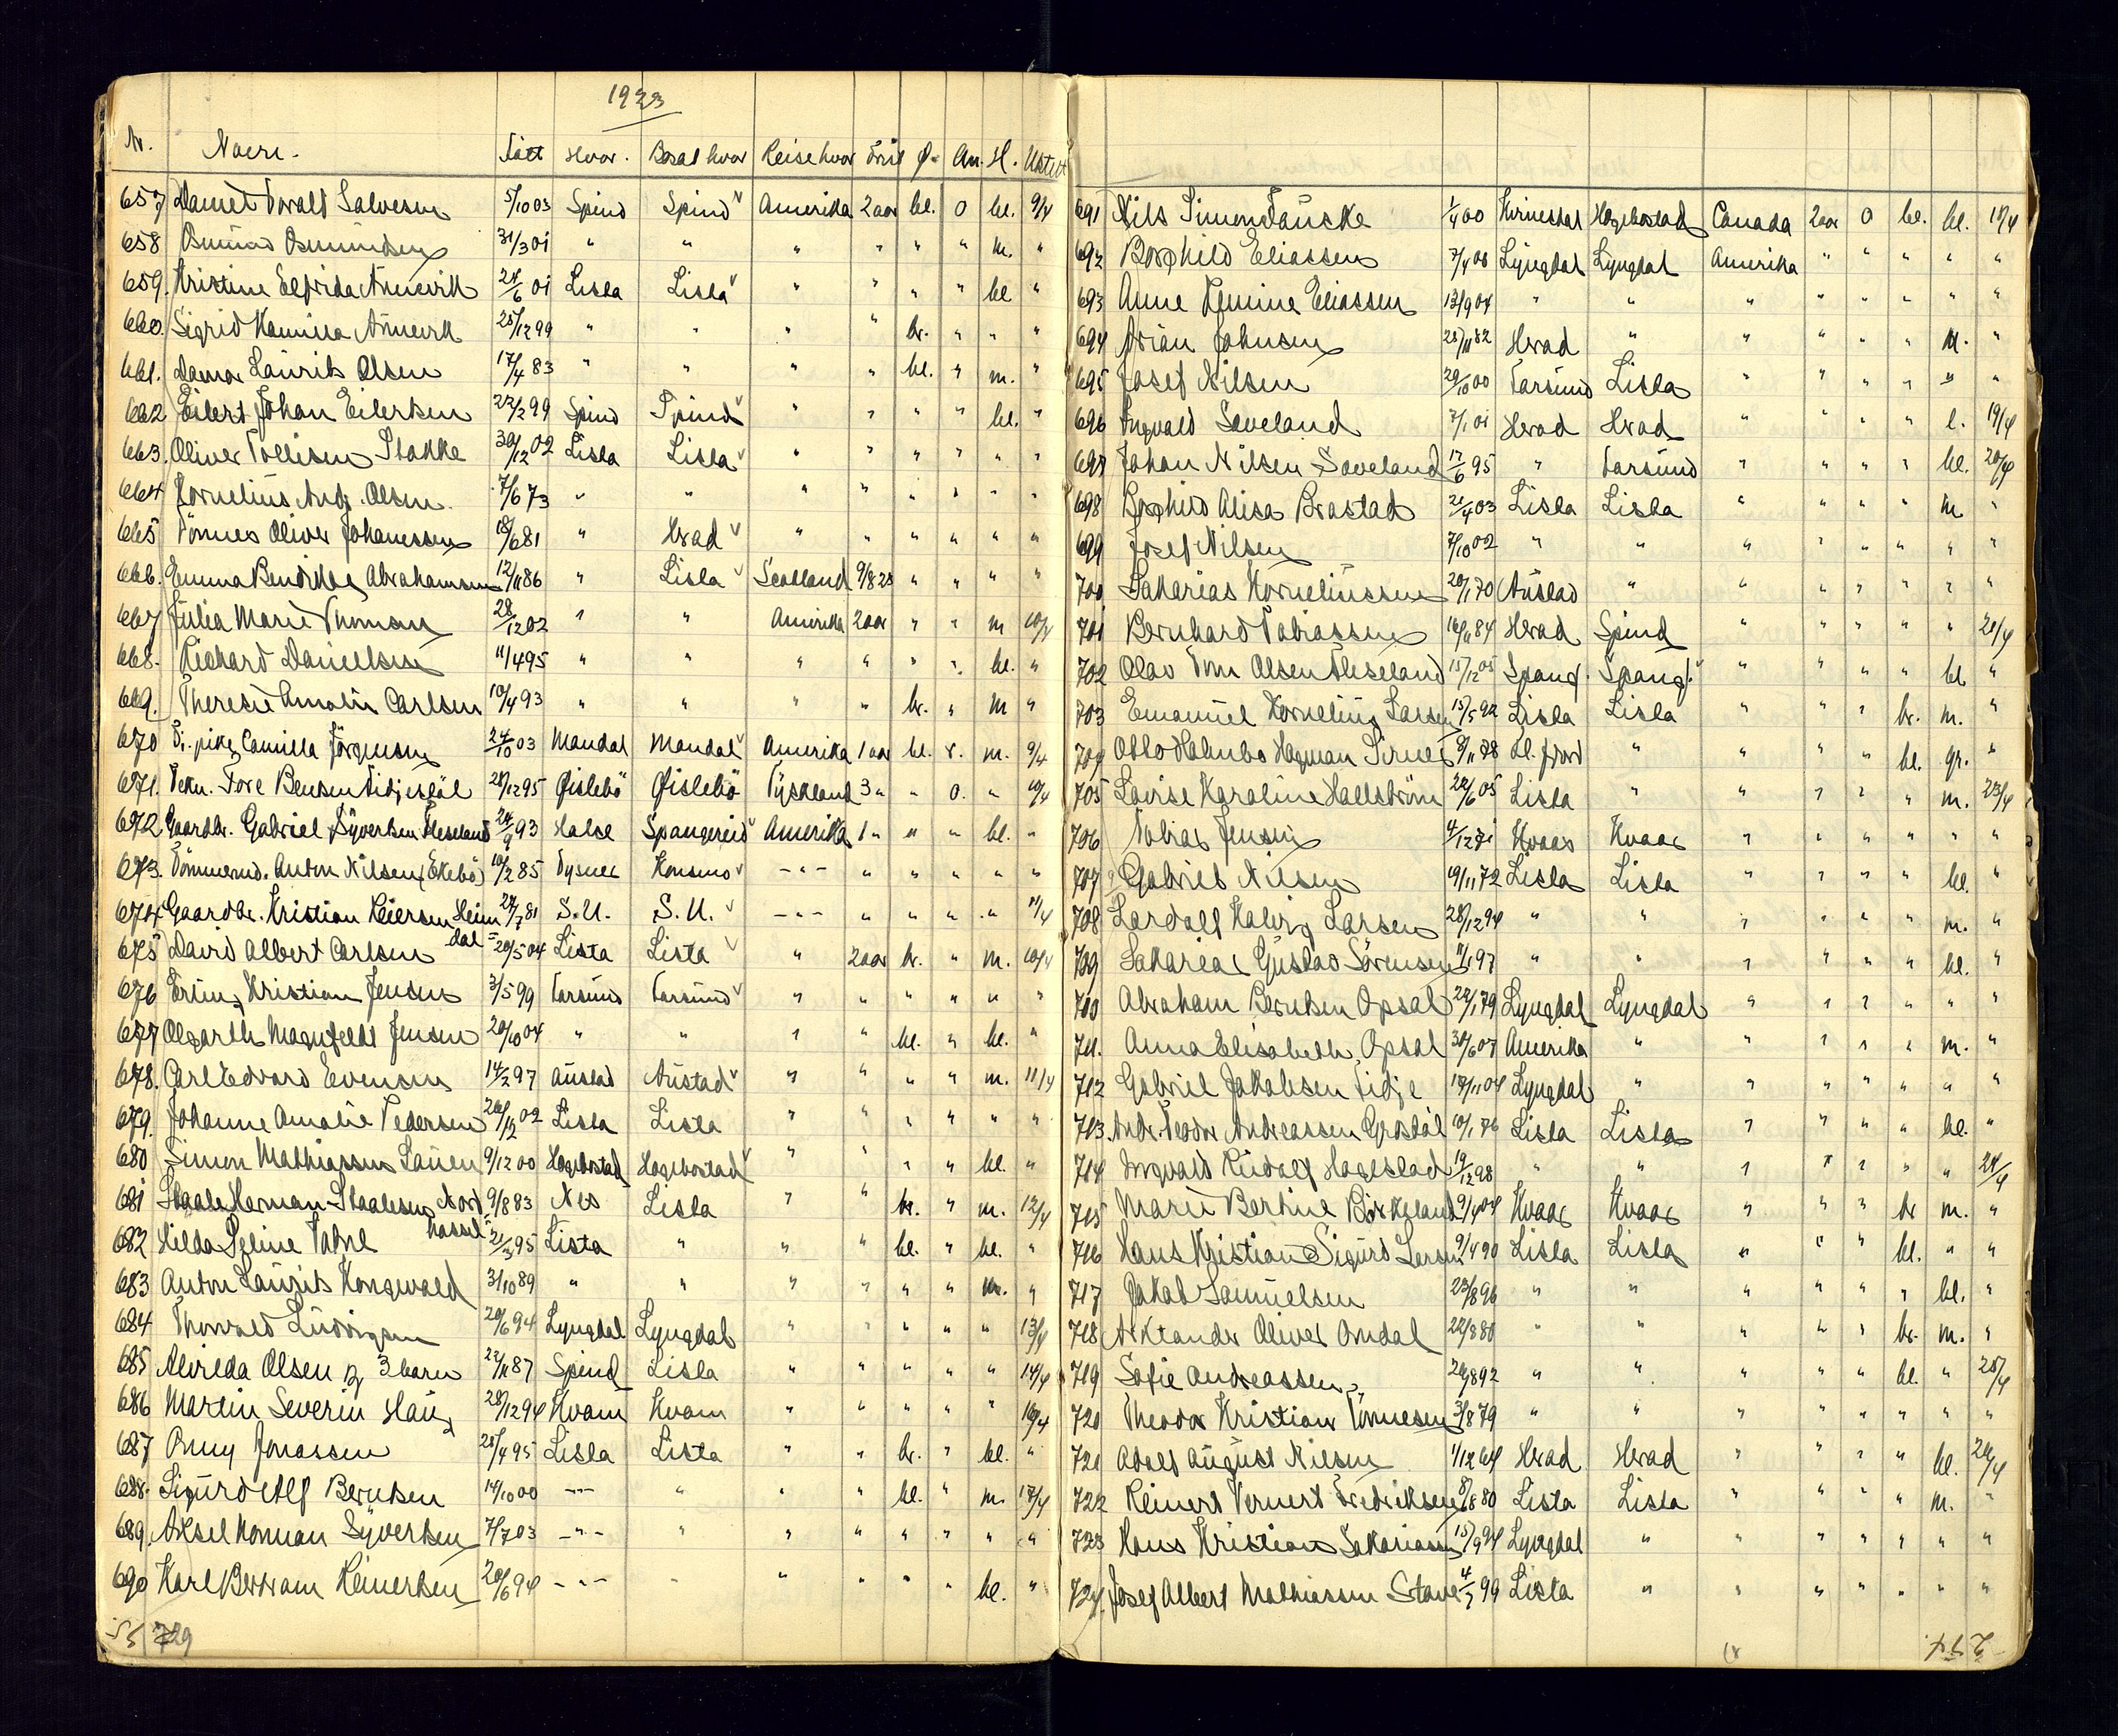 1923
Nr. Navn. Født Hvor. Bosat hvor Reise hvor Frist Ø. An. H. Utstedt
657 Daniel Toralf Salvesen 5/10 03 Spind Spind Amerika 2 aar bl. 0 bl. 9/4
658 Osmund Osmundsen 31/3 01 " " " " " " m. "
659. Kristine Elfrida Aunevik 24/6 01 Lista Lista " " " " bl "
660. Sigrid Kamilla Aunevik 25/12 99 " " " " br. " " "
661. Laurits Olsen 17/4 83 " " " " bl. " m. "
662 Eilert Johan Eilertsen 22/2 99 Spind Spind " " " " bl. "
663. Oliver Tollisen Stokke 30/12 02 Lista Lista " " " " " "
664 Kornelius Andr. Olsen 7/6 73 " " " " " " " "
665 Tønnes Oliver Johanessen 18/6 81 " Herad " " " " " "
666. Emma Bendikte Abrahamsen 12/11 86 " Lista Scotland 9/8 23 " " " "
667 Julia Marie Thomsen 28/12 02 " " Amerika 2 aar " " m 10/4
668. Richard Danielsen 11/4 95 " " " " " " bl. "
669. Therese Amalie Carlsen 10/4 93 " " " " br. " m "
670 Fr. pike Camilla Jørgensen 24/10 03 Mandal Mandal Amerika 1 aar bl. r. m. 9/4
671. Tekn. Tore Bentsen Tidjesdal 28/12 95 Øislebø Øislebø Tyskland 3 " " 0. " 10/4
672 Gaardbr. Gabriel Syvertsen Fleseland 24/9 93 Halse Spangereid Amerika 1 " " " bl. "
673. Tømmermd. Anton Nilsen (Ekebø) 10/2 85 Tysnes Konsmo - " - " " " " "
674 Gaardbr. Kristian Reiersen Heim 24/7 81 S. U. S. U. - " - " " " " 11/4
dal =
675 David Albert Carlsen 20/5 04 Lista Lista " 2 aar br. " m. 10/4
676 Erling Kristian Jensen 3/5 99 Farsund Farsund " " " " " "
677 Olgarth Magnfeldt Jensen 20/10 04 " " " " bl. " bl. "
678. Carl Edvard Evensen 14/2 97 Austad Austad " " " " m. 11/4
679. Johanne Amalie Pedersen 26/12 02 Lista Lista " " " " " "
680 Simon Mathiassen Lauen 9/12 00 Hægebostad Hægebostad " " " " bl. "
681 Staale Herman Staalesen Nord 9/8 83 Nes Lista " " br. " m. 12/4
hassel =
682 Hilda Seline Tabrl 21/3 95 Lista " " " bl. " bl. "
683 Anton Laurits Kongevold 3/10 89 " " " " " " m. "
684 Thorvald Ludvigsen 20/6 94 Lyngdal Lyngdal " " " " " 13/4
685 Alvilda Olsen og 3 barn 22/11 87 Spind Lista " " " " " 14/4
686 Martin Severin Haug 28/12 94 Kvam Kvam " " " " " 16/4
687 Anny Jonassen 25/4 95 Lista Lista " " br. " bl. "
688. Sigurd Alf Berntsen 14/10 00 - " - " " " bl. " m. 17/4
689. Aksel Norman Syvertsen 7/7 03 - " - " " " " " " "
690 Karl Bertram Reinertsen 20/6 94 - " - " " " " " bl. "
729
691 Nils Simon Fauske 1/4 00 Kvinesdal Hægebostad Canada 2 aar 0 bl. bl. 18/4
692 Borghild Eliassen 7/4 08 Lyngdal Lyngdal Amerika " " " " "
693 Anne Jemine Eliassen 13/9 04 " " " " " " " "
694 Arian Johnsen 25/11 82 Herad " " " " " m. "
695 Josef Nilsen 20/10 00 Farsund Lista " " " " " "
696 Ingvald Saveland 7/1 01 Herad Herad " " " " l. 19/4
697 Johan Nilsen Saveland 17/6 95 " Farsund " " " " bl. 20/4
698 Borghild Alisa Brastad 21/4 03 Lista Lista " " " " m "
699 Josef Nilsen 7/10 02 " " " " " " " "
700 Sakarias Korneliussen 20/1 70 Austad " " " " " " "
701 Bernhard Tobiassen 16/11 84 Herad Spind " " " " " 21/4
702 Olav Tom Olsen Fleseland 15/12 05 Spang. Spang. " " " " bl. "
703 Emanuel Kornelius Larsen 15/5 92 Lista Lista " " " br. m. "
704 Otto Holmbo Hagman Sirnes 9/11 78 Fl. fjord " " " " bl. gr. "
705 Lovise Karoline Hallstrøm 22/6 05 Lista " " " " " m. 23/4
706 Tobias Jensen 4/12 71 Kvaas Kvaas " " " " " "
707 Gabriel Nilsen 19/11 72 Lista Lista " " " " bl. "
708 Lardolf Kalvig Larsen 28/12 94 " " " " " " m. "
709 Sakarias Gustav Sørensen 11/1 97 " " " " " " bl. "
700 Abraham Berntsen Opsal 22/1 79 Lyngdal Lyngdal " " " " " "
711. Anna Elisabeth Opsal 30/6 07 Amerika " " " " " m. "
712 Gabriel Jakobsen Tidje 18/11 04 Lyngdal " " " " " " "
713. Andr. Teodor Andreassen Grøsdal 10/1 76 Lista Lista " " " " bl. "
714 Ingvald Rudolf Hagestad 19/12 98 " " " " " " " 24/4
715 Marie Bertine Birkeland 9/4 04 Kvaas Kvaas " " " br m. "
716 Hans Kristian Sigurd Larsen 9/4 90 Lista Lista " " " bl. " "
717 Jakob Samuelsen 23/8 96 " " " " " " bl. "
718 Arktander Oliver Omdal 22/3 80 " " " " " br. m. "
719 Sofie Andreassen 20/8 92 " " " " " bl. " 25/4
720 Theodor Kristian Tønnesen 3/8 79 " " " " " " " "
721 Adolf August Nilsen 1/12 64 Herad Herad " " " " bl. 26/4
722 Reinert Vernert Fredriksen 8/8 80 Lista Lista " " " " m. "
723 Hans Kristian Sakariassen 15/9 94 Lyngdal " " " " " " "
724. Josef Albert Mathiassen Stave 4/3 99 Lista " " " " " " "